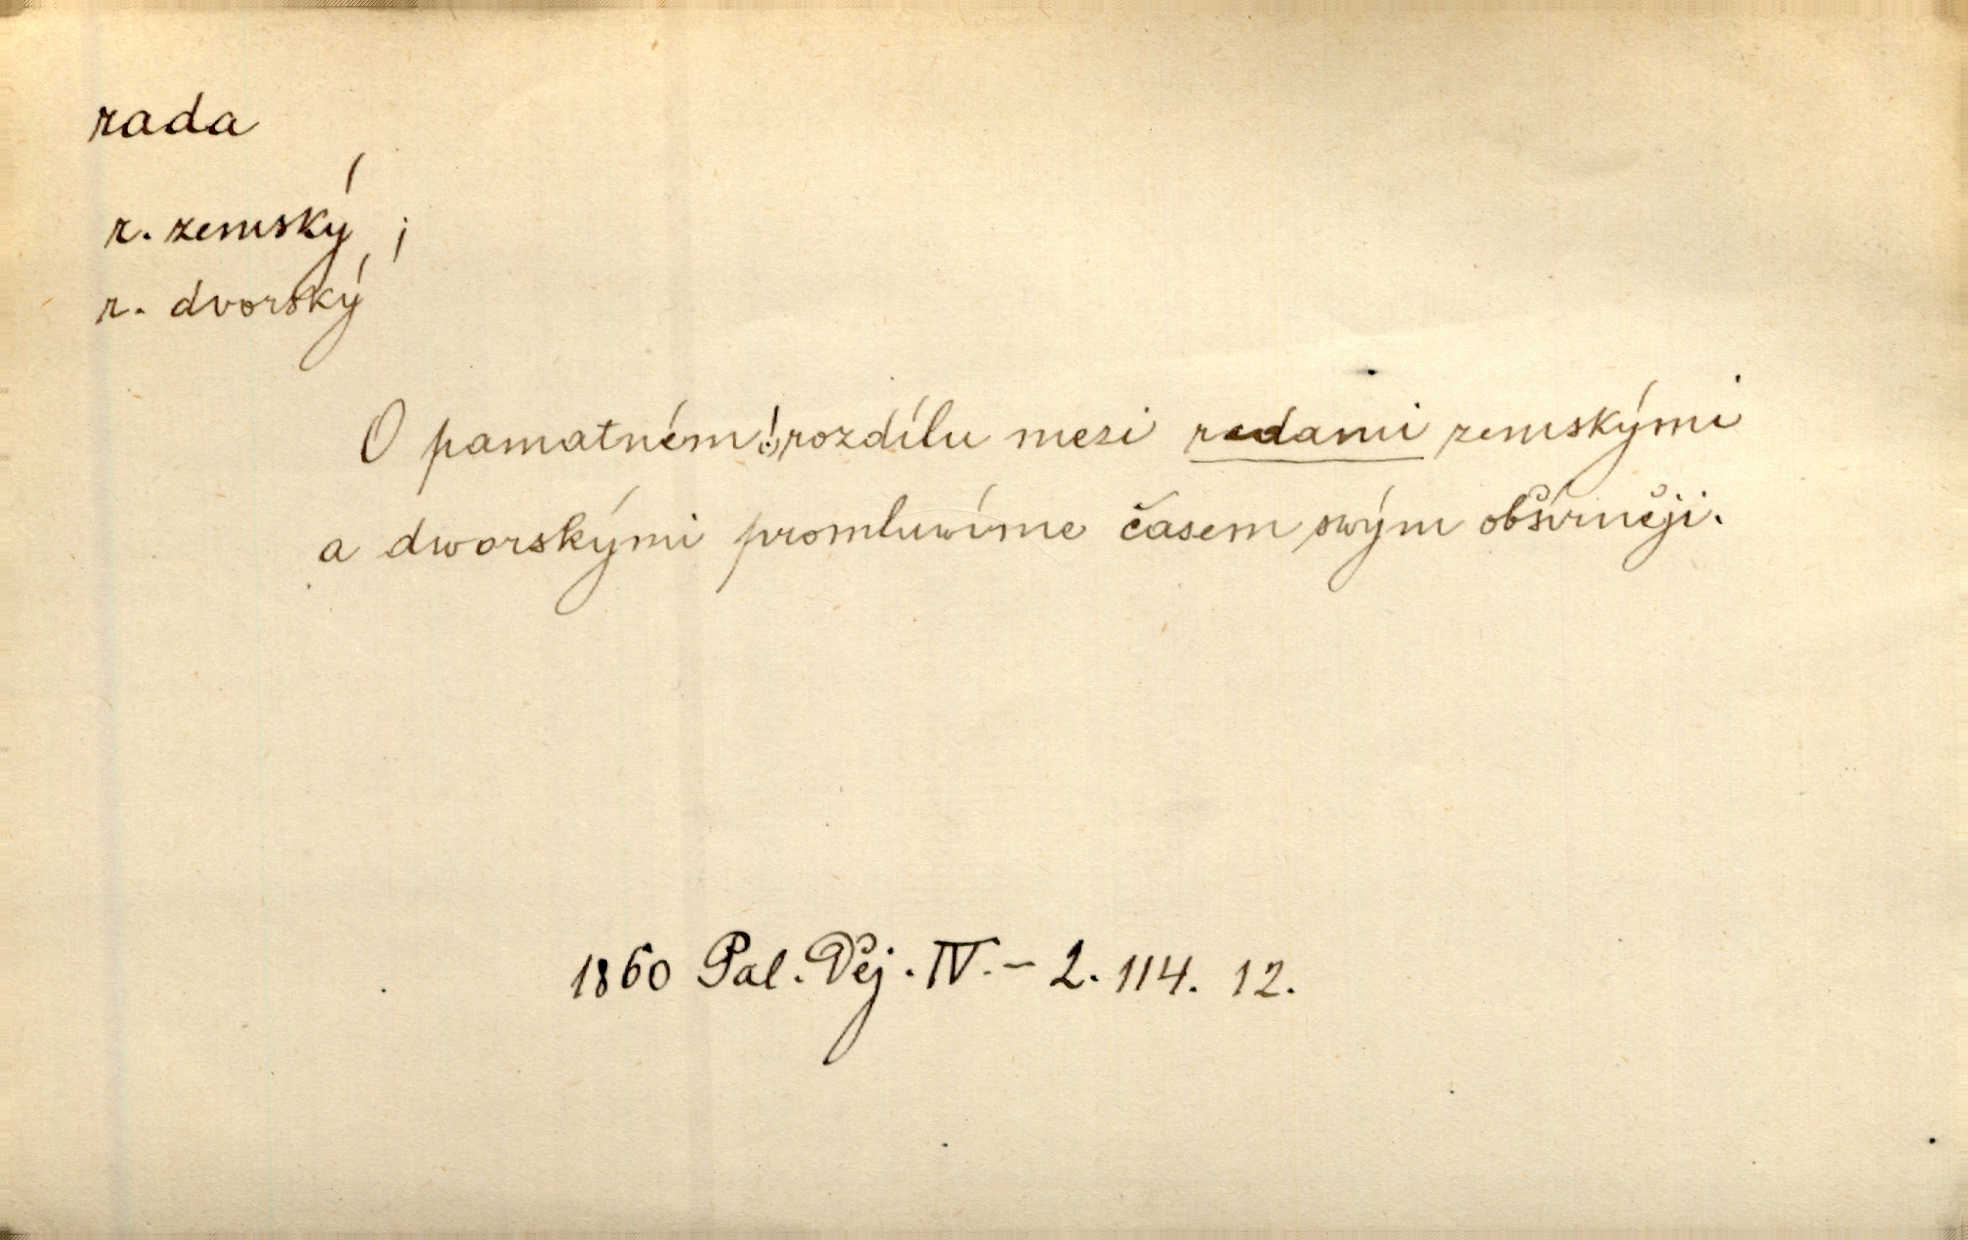 rada
r. zemský;
r. dvorský
O pamatném(!) rozdílu mezi radami zemskými
a dworskými promluwíme časem swým obšírněji.
1860 Pal. Děj. IV. – 2. 114. 12.